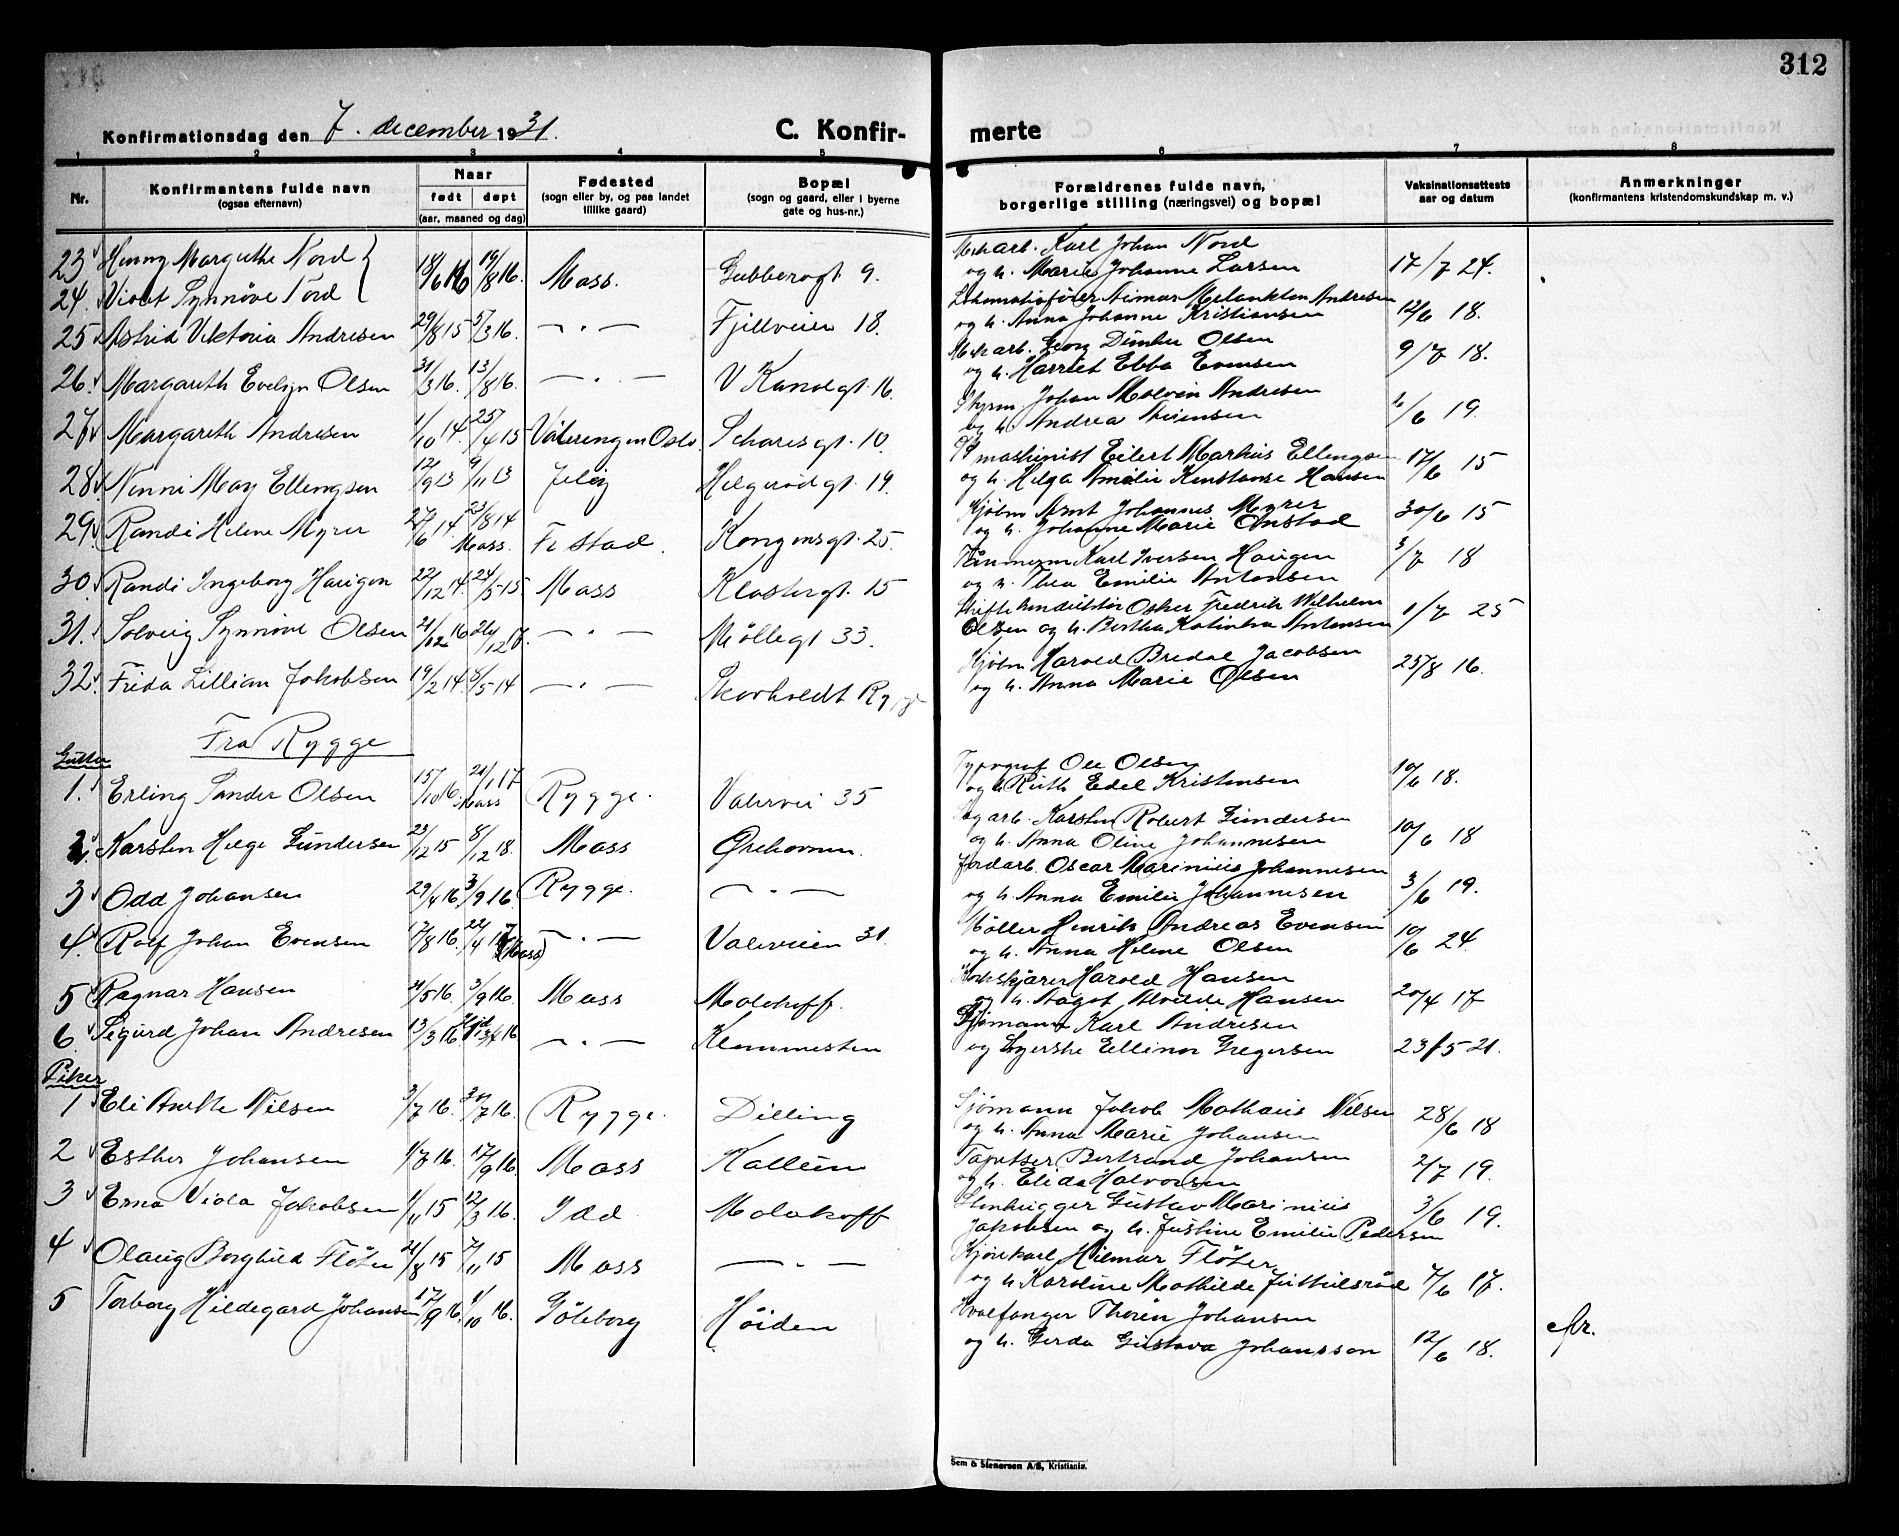 312
Konfirmationsdag den 7. december 1931.
C. Konfir-
merte
1 2 3 4 5 6 7 8
Nr.
Konfirmantens fulde navn
(ogsaa efternavn)
Naar
født døpt
(aar, maaned og dag)
Fødested
(sogn eller by, og paa landet
tillike gaard)
Bopæl
(sogn og gaard, eller i byerne
gate og hus-nr.)
Forældrenes fulde navn,
borgerlige stilling (næringsvei) og bopæl
Vaksinationsattests
aar og datum
Anmerkninger
(konfirmantens kristendomskundskap m. v.)
23 Henny Margrethe Nord 18/6 16 19/8 16. Moss. Gubberogt 9. Karl Johan Nord 17/7 24.
24. Synnöve Nord og h. Marie Johanne Larsen
25 Astrid Viktoria Andresen 29/8 15 5/3 16. — . — Fjellveien 18. Melankton Andresen 12/6 18.
og h. Anna Johanne Kristiansen
26. Margareth Evelyn Olsen 31/3 16. 13/8 16. — . — V Kanalgt. 16. Georg Olsen 9/7 18.
og h. Harriet Ebba Evensen
27 Margareth Andresen 1/10 14. 25/4 15 Vålerengen Oslo. gt. 10 Styrm Johan Andresen /6 19.
og h. Andrea
28 Nenni May Ellengsen 12/9 13 9/11 13 Jeløy Helgerødgt. 19. maskinist Eilert Markus Ellengsen 17/6 15
og h. Helga Amalie Konstanse Hansen
29. Randi Helene Myrer 27/6 14. 23/8 14 Moss. Fr stad. Kongensgt. 25. Arnt Johannes Myrer 30/6 15
og h. Johanne Marie Onstad
30. Randi Ingeborg Haugen 22/12 14. 24/5 15 Moss Klostergt. 15 Karl Iversen Haugen 3/7 18
og h. Thea Emilie Antonsen
31. Solveig Synnöve Olsen 21/12 16 — . — Möllegt 33. Oskar Fredrik Wilhelm 1/7 25
Olsen og h. Bertha Katinka Antonsen
32. Frida Lillian Jakobsen 19/2 14. /5 14 — . — Rygge Harald Bredal Jacobsen 25/8 16.
og h. Anna Marie Olsen
Fra Rygge
Gutter
1. Erling Sander Olsen 15/10 16. 21/1 17 Moss Rygge. Valervei 35 Typograf Ole Olsen 10/6 18.
og h Ruth Edel Kristensen
2. Karsten Helge Gundersen 23/12 15 8/12 18. Moss Ørehavnen. Karsten Robert Gundersen 10/6 18
og h. Anna Oline Johannesen
3 Odd Johansen 29/4 16 3/9 16. Rygge. — . — Jordarb. Oscar Marinius Johannesen 3/6 19.
og h. Anna Emilie Johannesen
4. Rolf Johan Evensen 17/8 16. 22/4 17 (Moss) — . — Valerveien 31. Möller Henrik Andreas Evensen 10/6 24.
og h. Anna Helene Olsen
5 Ragnar Hansen /5 16. 3/9 16. Moss Malakoff. Harald Hansen 20/4 17
og h. Aagot Alvilde Hansen
6. Sigurd Johan Andresen 13/3 16 — . — Klommesten Sjømann Karl Andresen 23/5 21.
og Ellinor Gregersen
Piker
1 Eli Anette Nilsen 3/7 16. 30/7 16. Rygge. Dilling Sjömann Jakob Mathæus Nilsen 28/6 18
og h. Anna Marie Johansen
2 Esther Johansen 1/7 16. 17/9 16 Moss Kallum Tapetser Bertrand Johansen 2/7 19.
og h. Elida Halvorsen
3 Erna Viola Jakobsen 1/11 15 12/3 16. Idd Malakoff Stenhugger Gustav Marinius 3/6 19.
Jakobsen og h. Justine Emilie Pedersen
4 Olaug Borghild Flöter 21/8 15 7/11 15 Moss — . — Hilmar Flöter 7/6 17.
og h Karoline Mathilde
5 Torborg Hildegard Johansen 17/9 16. 1/10 16. Göteborg Høiden Hvalfanger Thorén Johansen
og h. Gerda Gustava Johansson 12/6 18.
Sem & Stenersen A/S, Kristiania.